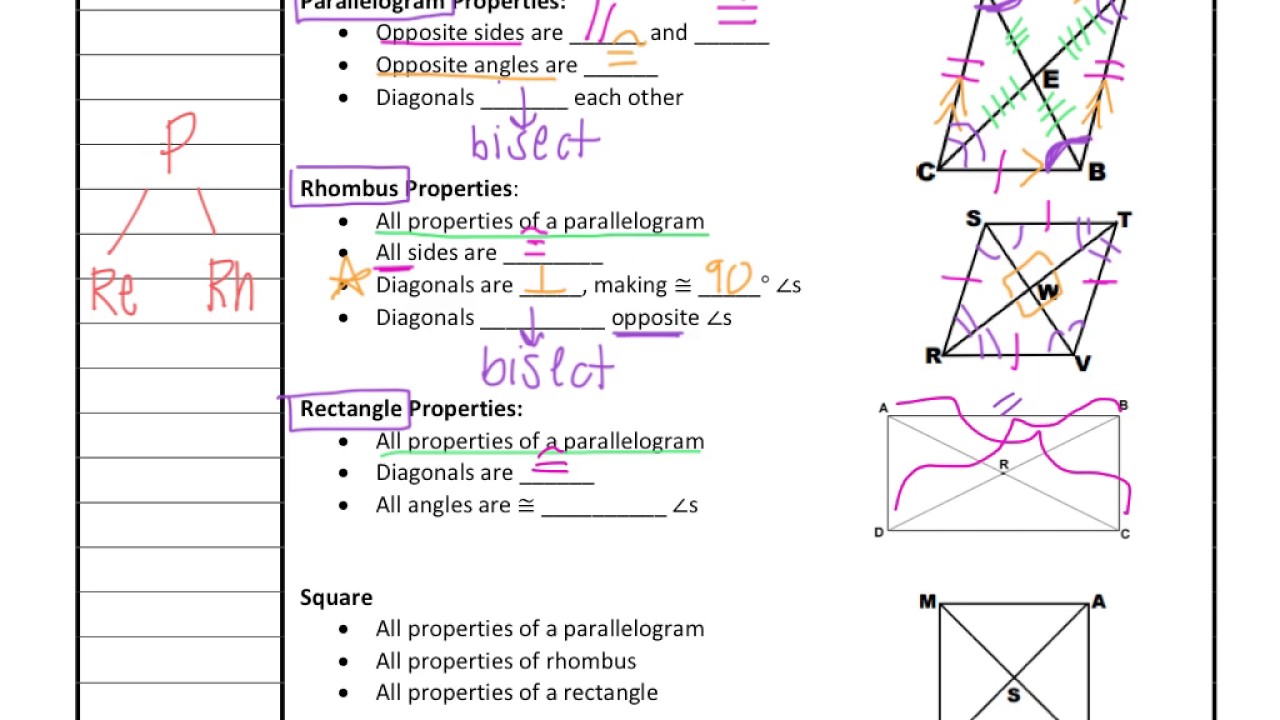 Parallelogram Properties:
• Opposite sides are // and ≅
• Opposite angles are ≅
• Diagonals ______ each other
bisect
Rhombus Properties:
• All properties of a parallelogram
• All sides are ≅
• Diagonals are ⊥, making ≅ 90° ∠s
• Diagonals ______ opposite ∠s
bisect
Rectangle Properties:
• All properties of a parallelogram
• Diagonals are ≅
• All angles are ≅ __________ ∠s
Square
• All properties of a parallelogram
• All properties of rhombus
• All properties of a rectangle
P
Re Rh
E
C B
S T
W
R V
A B
R
D C
M A
S